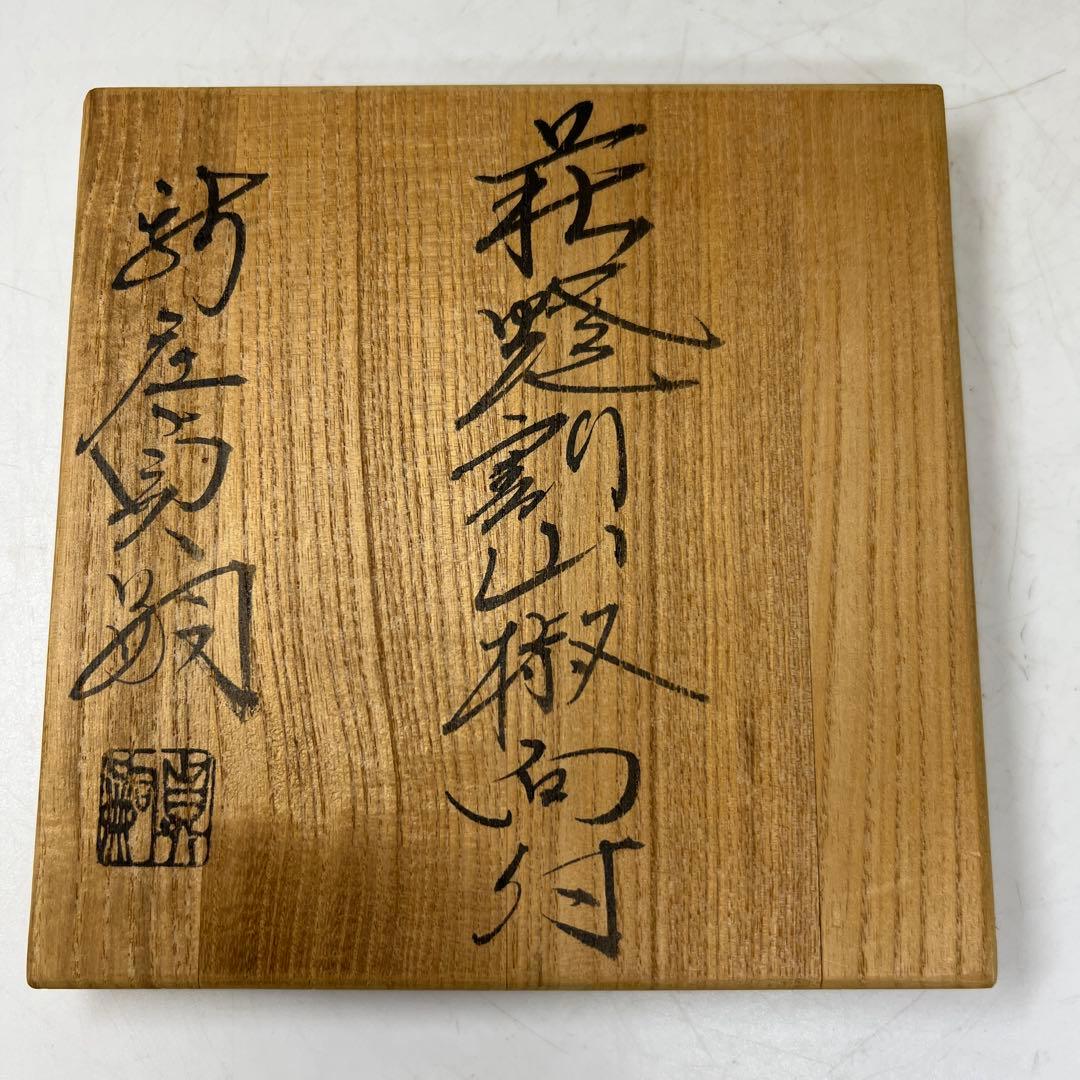 新庄貞嗣
萩割山椒向付
貞嗣